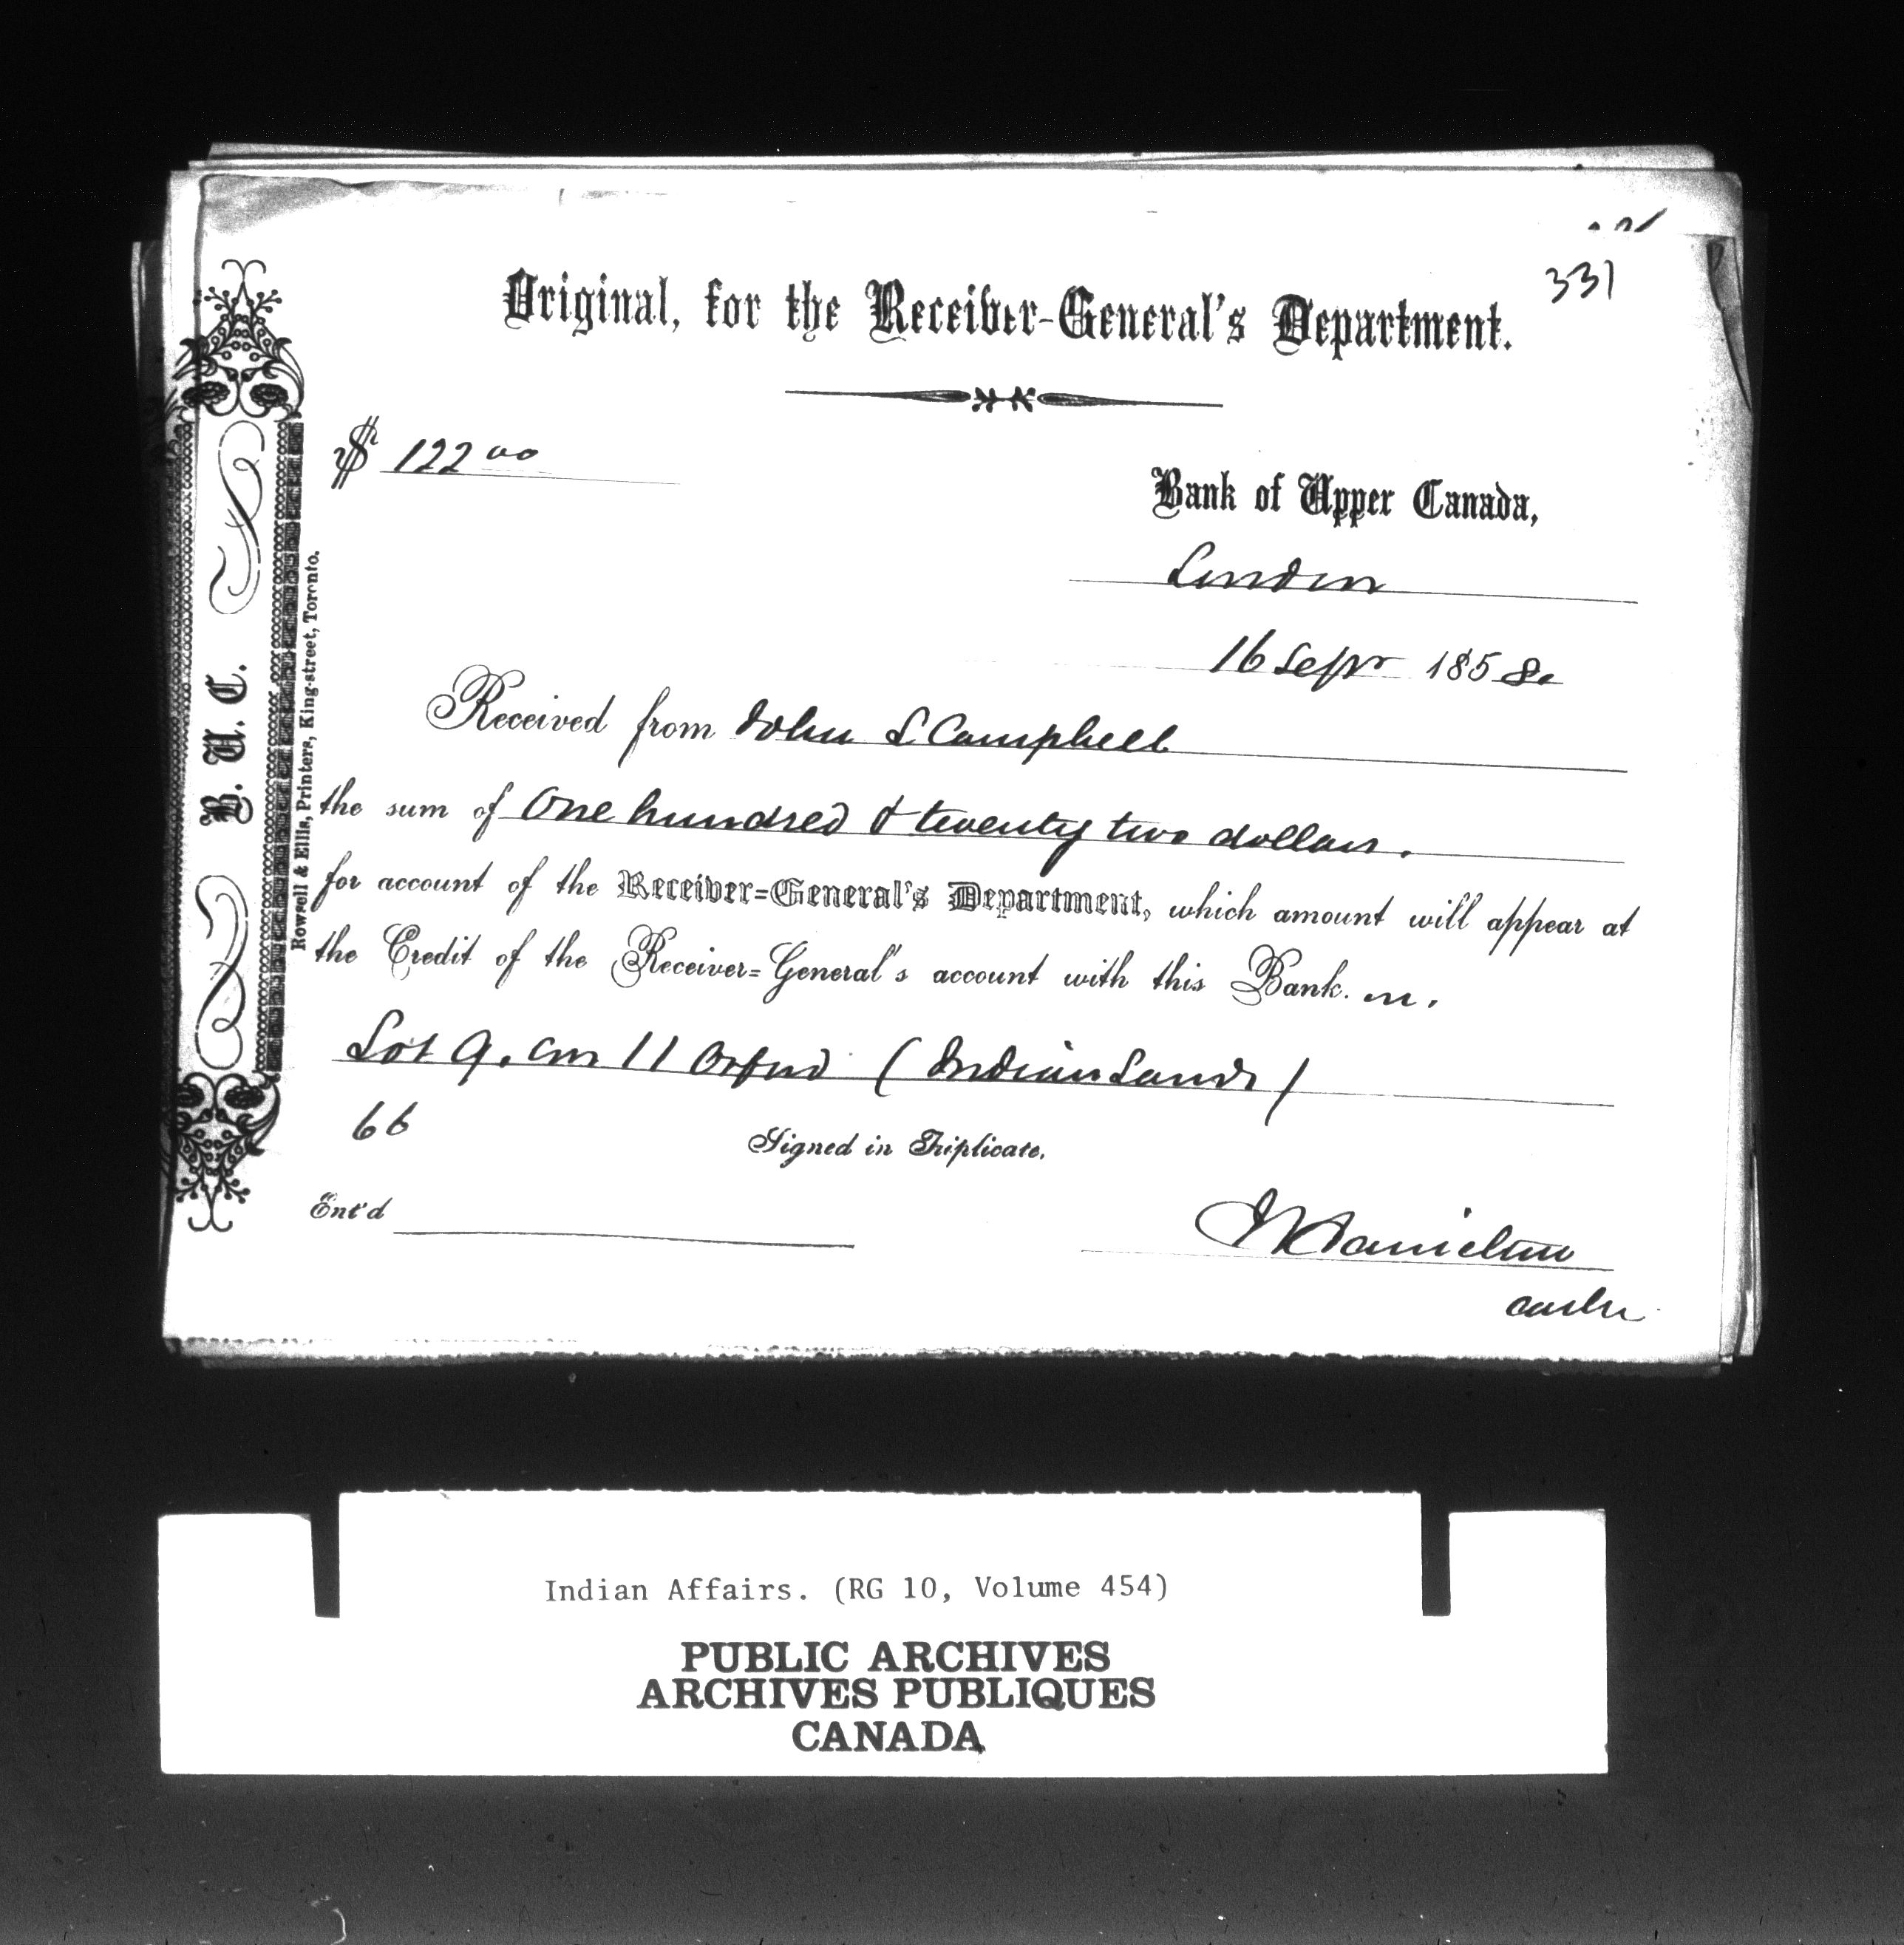 331
Original, for the Receiver-General's Department.
$ 122 00
Bank of Upper Canada,
London
16 Sepr 1858.
Received from John S Campbell
the sum of One hundred & twenty two dollars.
for account of the Receiver=General's Department, which amount will appear at
the Credit of the Receiver=General's account with this Bank. on.
Lot 9. con 11 Orford (Indian Lands)
66
Signed in Triplicate.
Ent'd
Hamilton
B. U. C.
Rowsell & Ellis, Printers, King-street, Toronto.
Indian Affairs. (RG 10, Volume 454)
PUBLIC ARCHIVES
ARCHIVES PUBLIQUES
CANADA